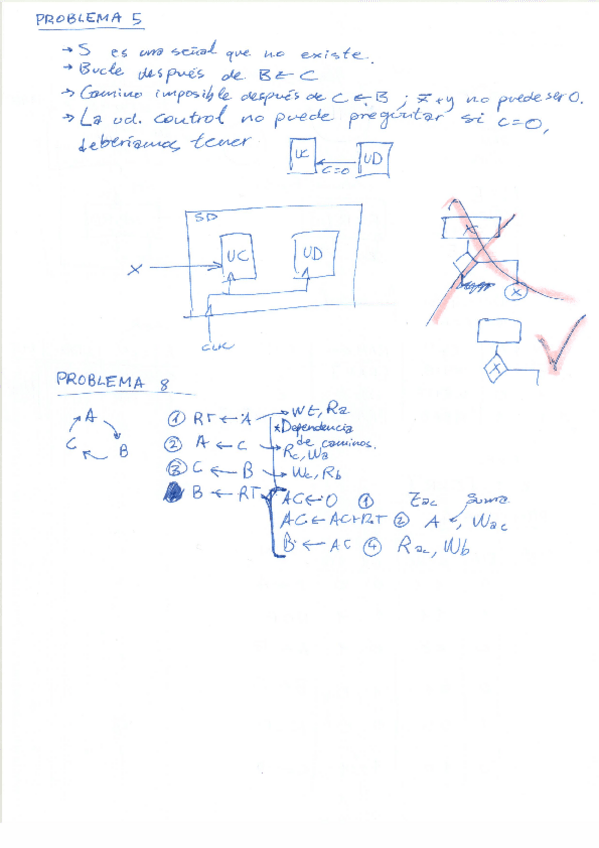 PROBLEMA 5
→ S es una señal que no existe.
→ Bucle después de B ← C
→ Camino imposible después de C ← B ; x̄+y no puede ser 0.
→ La ud. control no puede preguntar si c=0,
deberíamos tener
UC
UD
c=0
SD
UC
UD
X
CLK
x
x
x
PROBLEMA 8
A
B
C
① RT ← A → Wt, Ra
* Dependencia
de caminos.
② A ← C → Rc, Wa
③ C ← B → Wc, Rb
B ← RT
AC ← 0 ① Zac Suma
AC ← AC+RT ② A, Wac
B ← AC ④ Rac, Wb